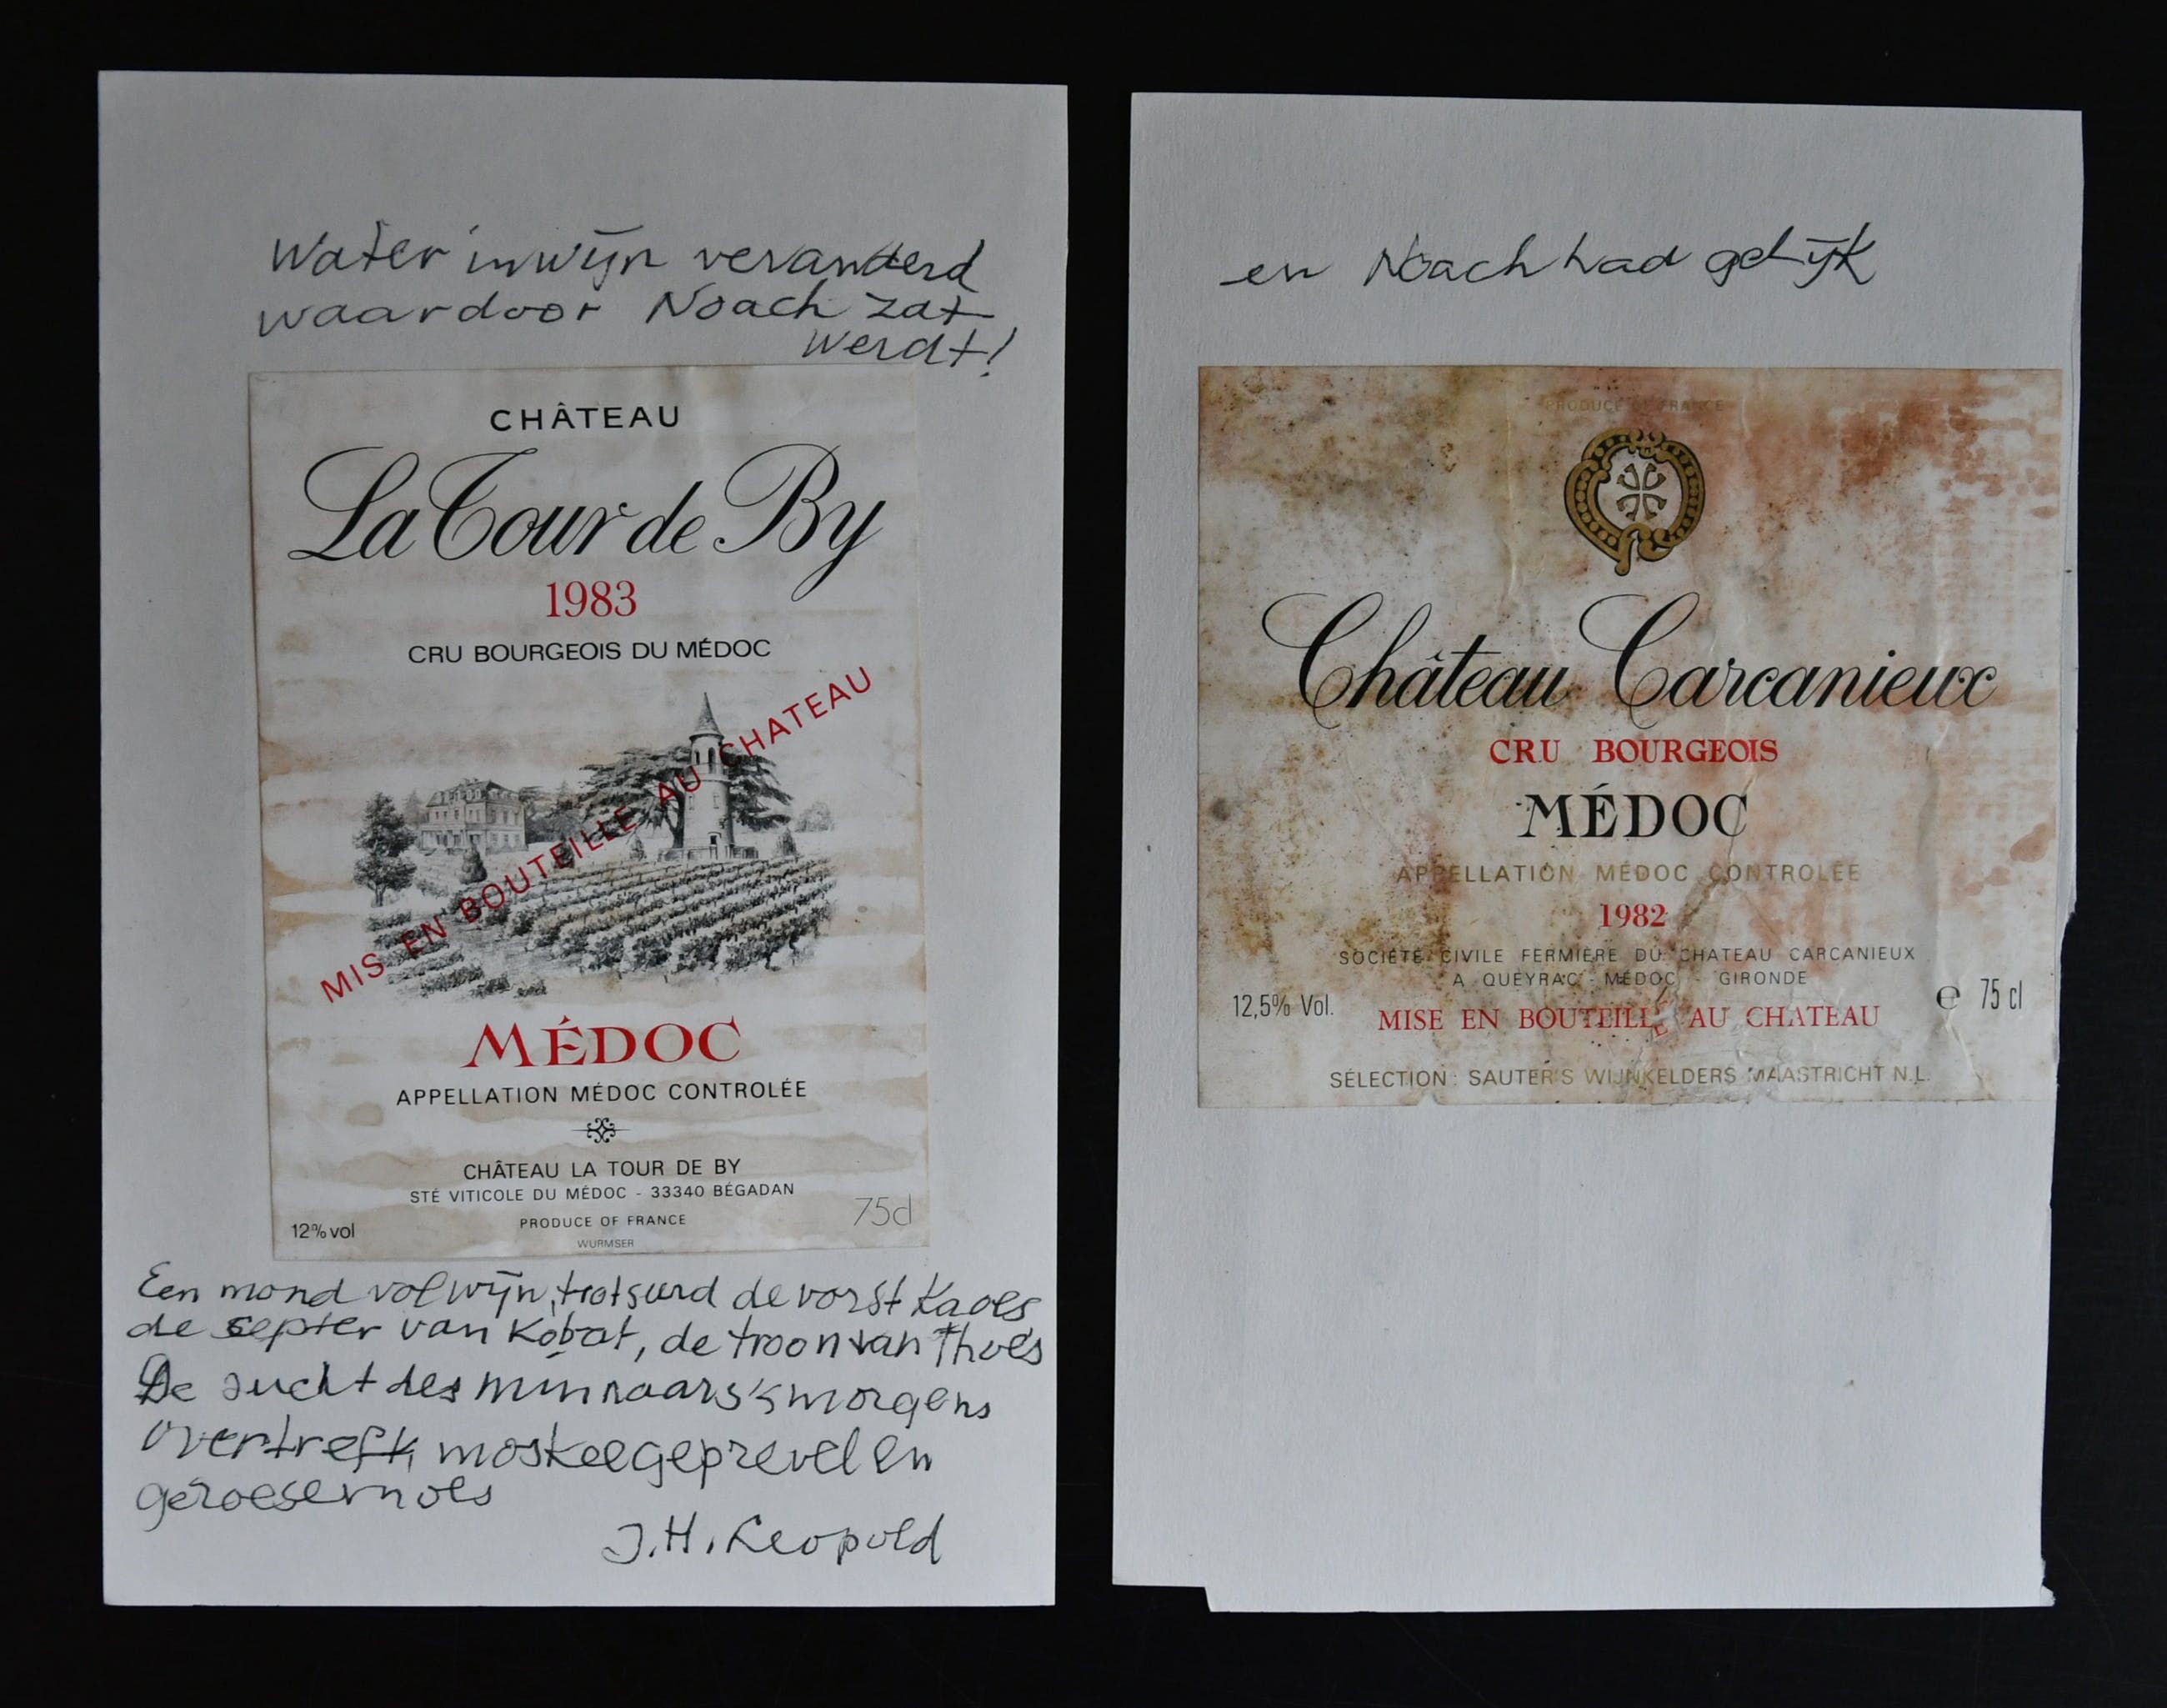 Water in wijn veranderd
waardoor Noach zat
werdt!
CHÂTEAU
La Tour de By
1983
CRU BOURGEOIS DU MÉDOC
MIS EN BOUTEILLE AU CHATEAU
MÉDOC
APPELLATION MÉDOC CONTROLÉE
CHÂTEAU LA TOUR DE BY
STÉ VITICOLE DU MÉDOC - 33340 BÉGADAN
12% vol
PRODUCE OF FRANCE
75cl
WURMSER
Een mond vol wijn, de vorst Kaoes
de septer van Kobat, de troon van Thoes
De zucht des minnaars 's morgens
overtreft, moskeegeprevel en
J.H. Leopold
en Noach had gelijk
PRODUCE OF FRANCE
Château Carcanieux
CRU BOURGEOIS
MÉDOC
APPELLATION MÉDOC CONTROLÉE
1982
SOCIÉTÉ CIVILE FERMIÈRE DU CHATEAU CARCANIEUX
A QUEYRAC - MÉDOC - GIRONDE
12,5% Vol.
MISE EN BOUTEILLE AU CHATEAU
e 75 cl
SÉLECTION : SAUTER'S WIJNKELDERS MAASTRICHT N.L.